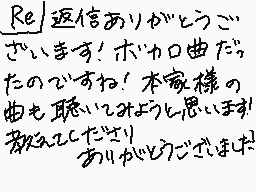 Re 返信ありがとうご
ざいます!ボカロ曲だっ
たのですね!本家様の
曲も聴いてみようと思います!
教えてくださり
ありがとうございました!